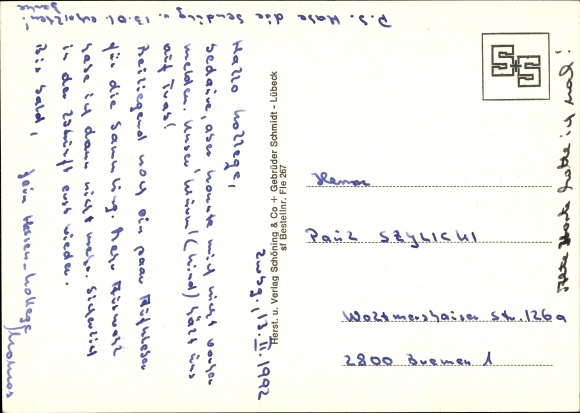 P.S. Habe die Sendung v. 13.01. erhalten!
Danke
2000g. 13.II.1992
Hallo Kollege,
bedaure, aber konnte mich nicht vorher
melden. Unser Wurm! (Kind) hält uns
auf Trab!
Beiliegend noch ein paar Aufkleber
für die Sammlung. Mehr Auswahl
habe ich dann nicht mehr. Sicherlich
in der Zukunft erst wieder.
Bis bald,
Dein Hessen-Kollege
Horst. u. Verlag Schöning & Co + Gebrüder Schmidt - Lübeck
sf Bestellnr. Fle 267
Herrn
Paul SZYLICKI
Woltmershauser Str. 126a
2800 Bremen 1
Karte hatte ich mal!